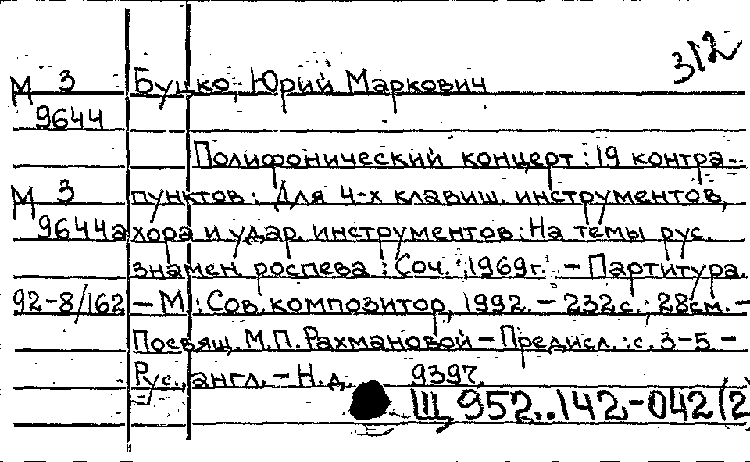 312
М 3 Буцко, Юрий Маркович
9644
Полифонический концерт: 19 контра-
М 3 пунктов: Для 4-х клавиш. инструментов,
9644а хора и удар. инструментов: На темы рус.
знамен. роспева: Соч. 1969г. – Партитура.
92-8/162 – М.: Сов. композитор, 1992. – 232с.; 28см. –
Посвящ. М.П. Рахмановой – Предисл.: с. 3-5. –
Рус., англ. – Н.д. 9397.
Щ 952..142-042(2